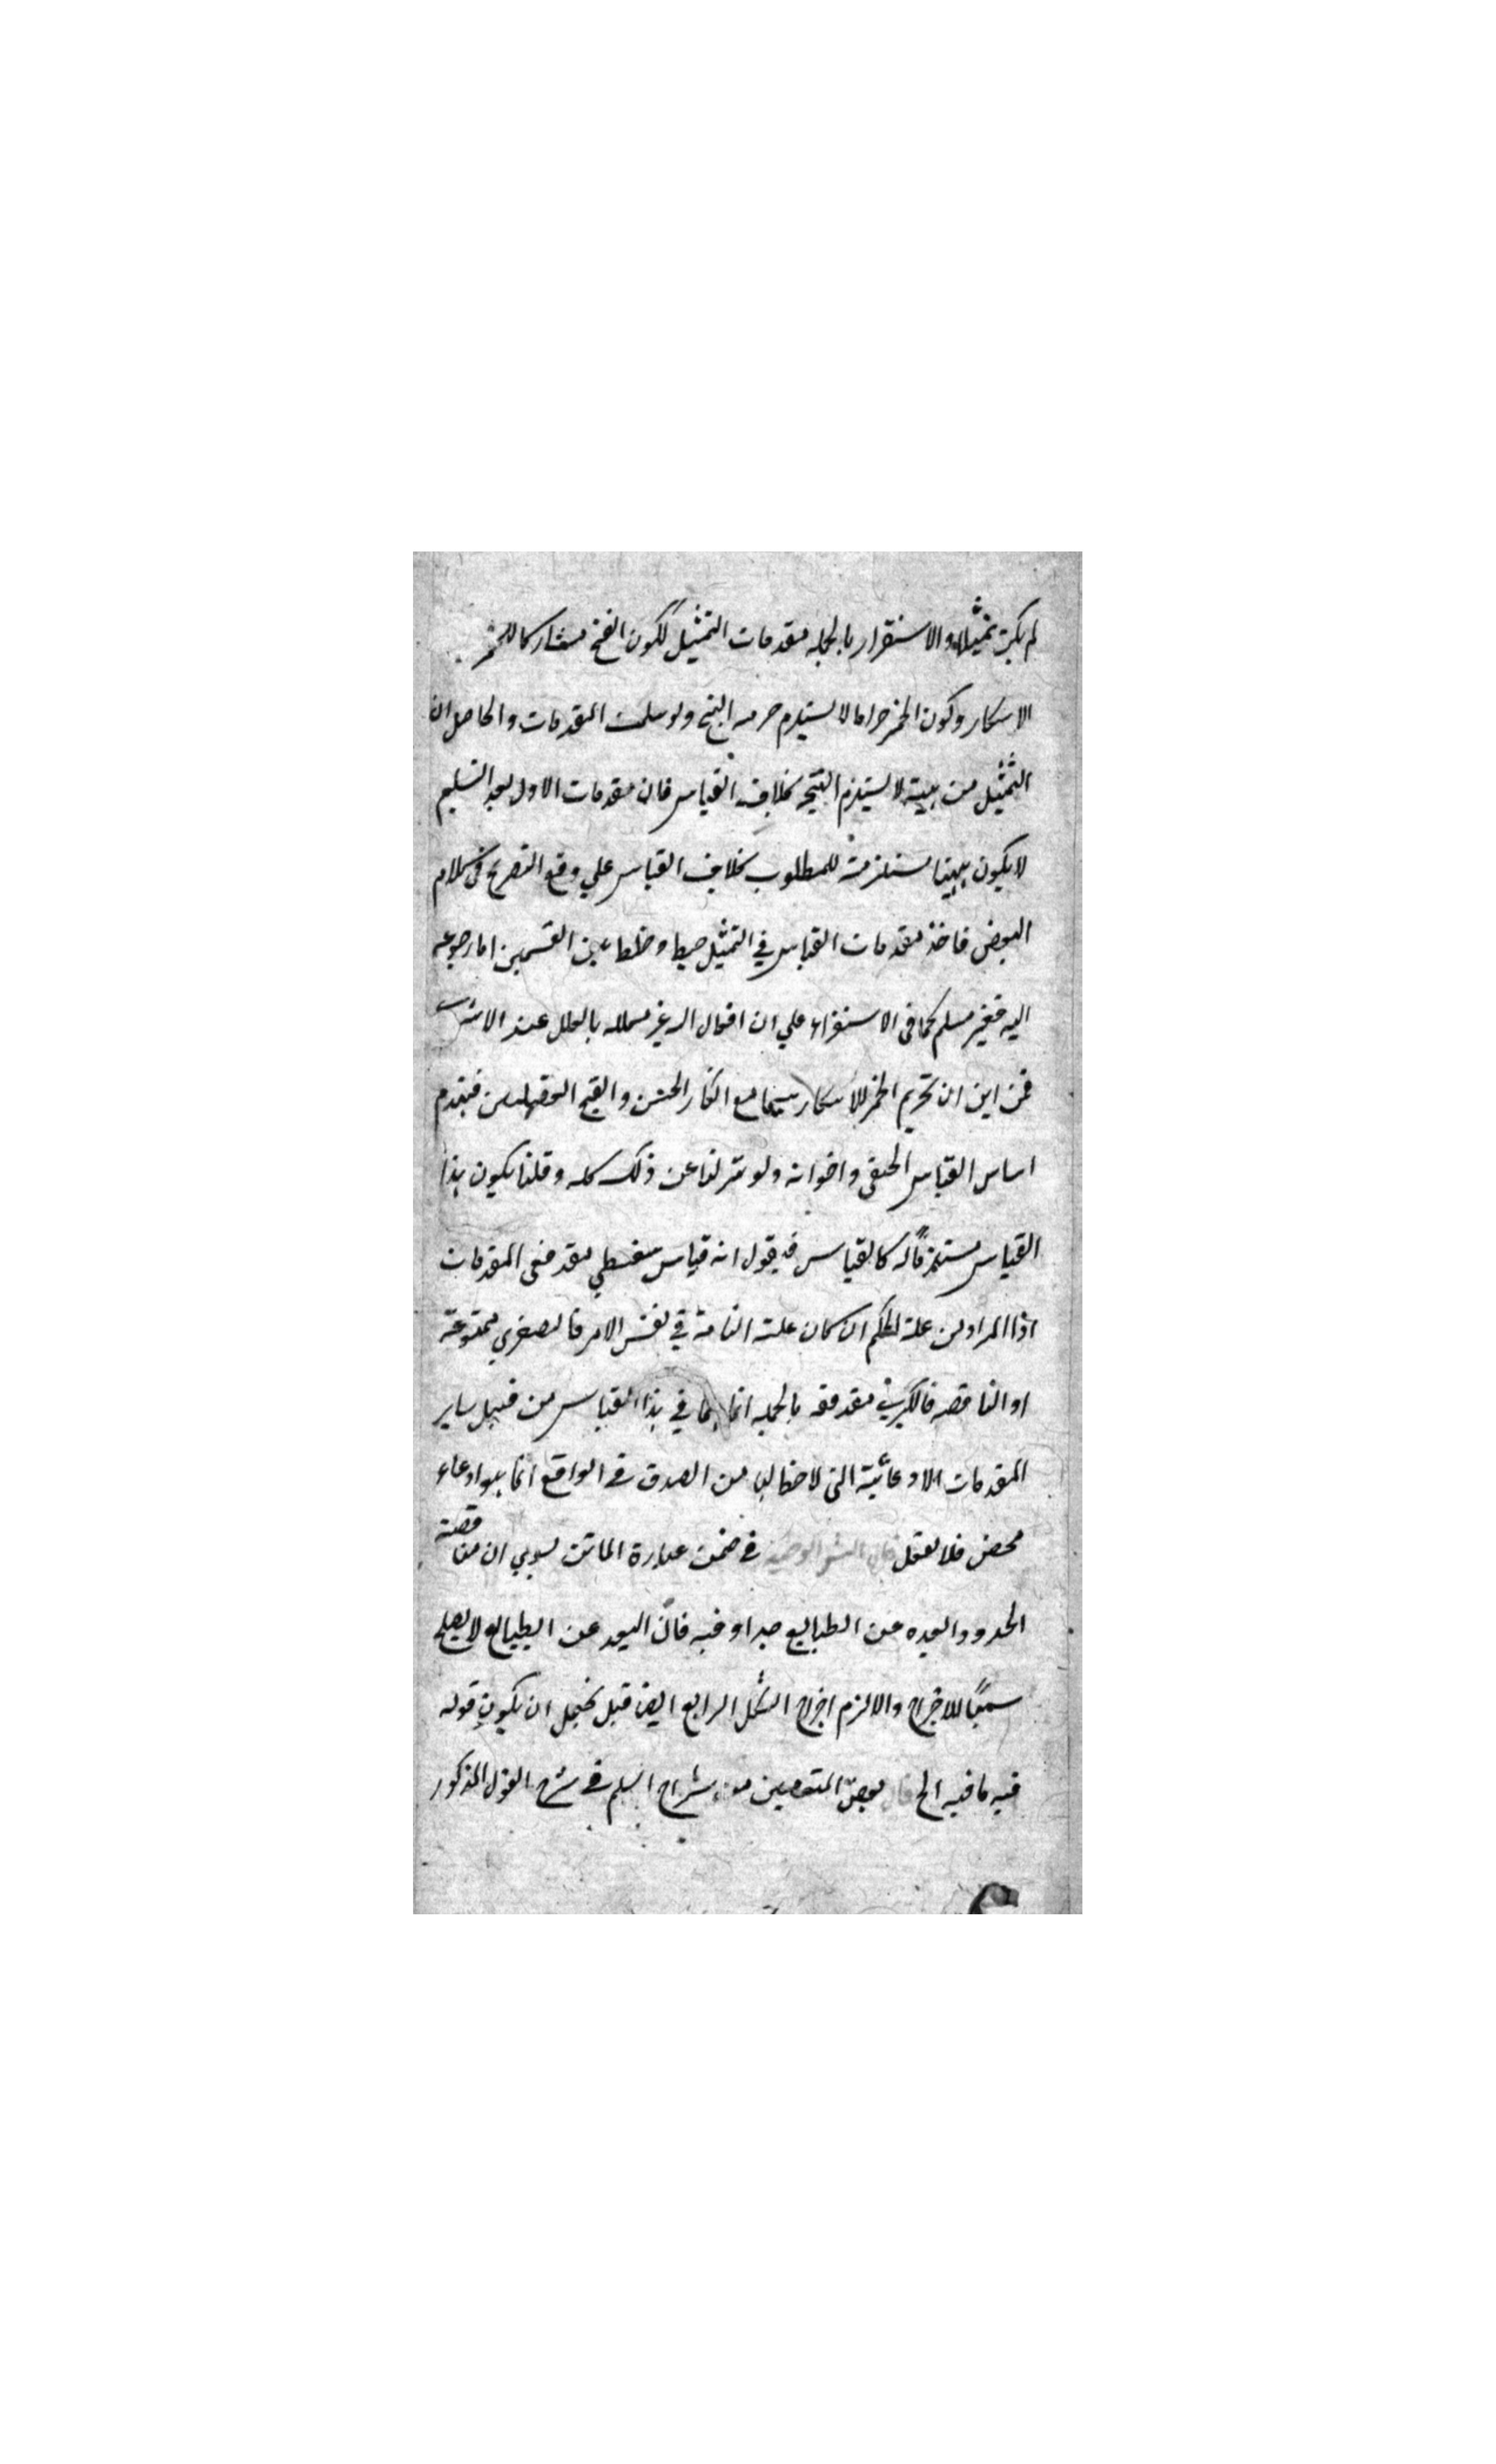 لم يكن تمثيلا والاستقرار بالجمله مقدمات التمثيل لكون الفخ مشاركا للخمر
الاسكار وكون الخمر حراما لا يستلزم حرمه البنج ولو سلمت المقدمات والحاصل ان
التمثيل من بينة لا يستلزم النتيجه بخلاف القياس فان مقدمات الاول بعد التسليم
لا يكون بينا مستلزمة للمطلوب بخلاف القياس علي وقع التصريح في كلام
البعض فاخذ مقدمات القياس في التمثيل خبط وخلط بين القسمين اما رجوعه
اليه فغير مسلم كما في الاستقراء علي ان افعال الله غير معلله بالعلل عند الاشر
فمن اين ان تحريم الخمر للاسكار سيما مع انكار الحسن والقبح العقليين فينهدم
اساس القياس الحنفي واخوانه ولو تنزلنا عن ذلك كله وقلنا بكون هذا
القياس مستلزما له كالقياس فيقول انه قياس سفسطي لقد مغى المقدمات
اذا المراد من علة الحكم ان كان علته التامة في نفس الامر فالصغري ممنوعة
او الناقصه فالكبري مقدمه بالجمله انما في هذا القياس من قبيل ساير
المقدمات الادعائية التي لا حظ لها من الصدق في الواقع انما هو ادعاء
محض فلا تعقل قال الشارح في ضمن عبارة الماتن يومي ان مناقصة
الحدود والبعده عن الطبايع جدا وفيه فان البعد عن الطبايع لا يصلح
سببا للاخراج والا لزم اخراج الشكل الرابع ايضا قيل يحتمل ان يكون قوله
فيه ما فيه الخ قال بعض المتعصبين من شراح السلم في شرح القول المذكور